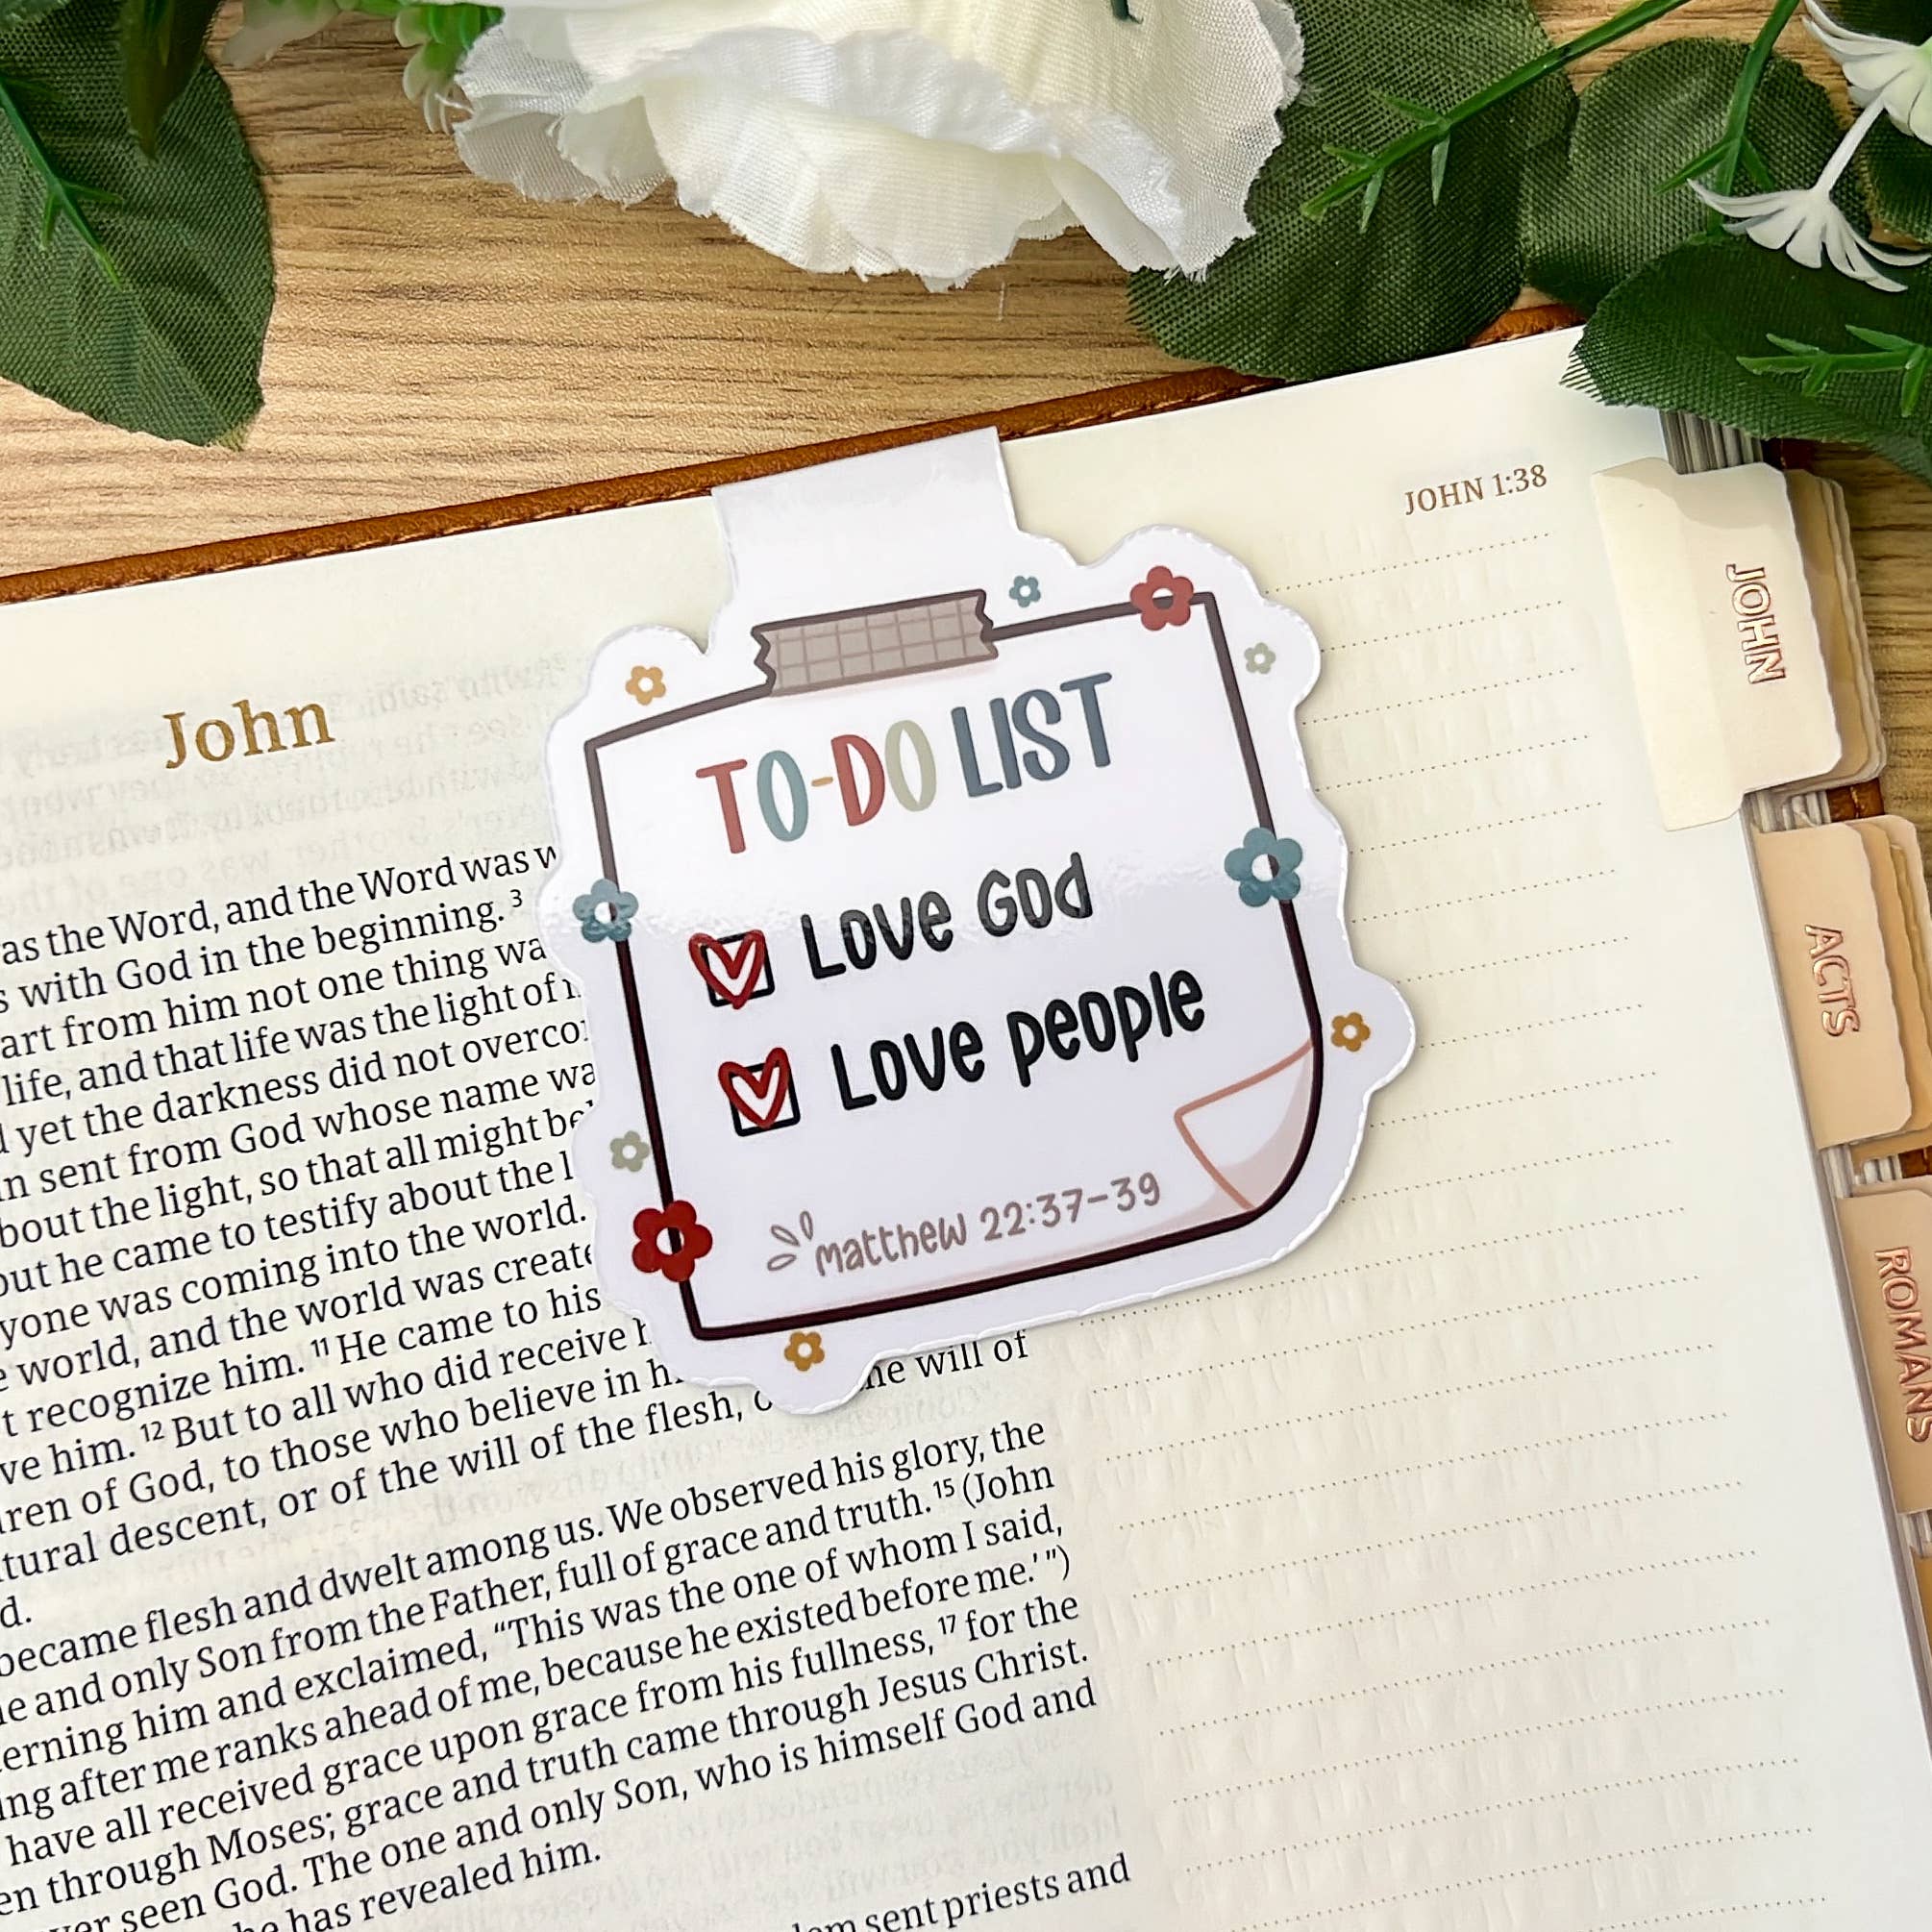 JOHN 1:38
JOHN
ACTS
ROMANS
John
TO-DO LIST
LOVE GOD
LOVE people
matthew 22:37-39
as the Word, and the Word was
with God in the beginning. 3
from him not one thing
life, and that life was the light of
yet the darkness did not
sent from God whose name
about the light, so that all might
but he came to testify about the
was coming into the world.
world, and the world was
recognize him. 11 He came to his
him. 12 But to all who did receive
of God, to those who believe in
descent, or of the will of the flesh, will of
became flesh and dwelt among us. We observed his glory, the
and only Son from the Father, full of grace and truth. 15 (John
him and exclaimed, “This was the one of whom I said,
after me ranks ahead of me, because he existed before me.’ ”)
have all received grace upon grace from his fullness, 17 for the
through Moses; grace and truth came through Jesus Christ.
seen God. The one and only Son, who is himself God and
has revealed him.
sent priests and